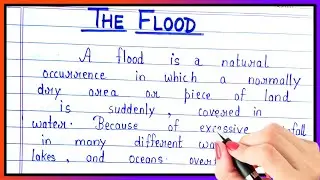 THE FLOOD
A flood is a natural
occurrence in which a normally
dry area or piece of land
is suddenly, covered in
water. Because of excessive
in many different
lakes, and oceans